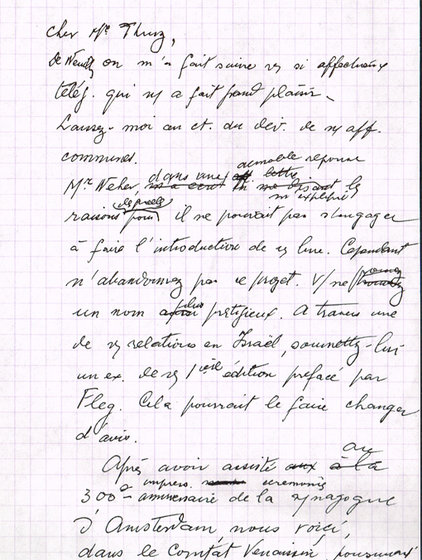 cher Mr Thurz,
de Neuilly on m'a fait suivre vs si affectueux
télég. qui ns a fait grand plaisir.
Laissez-moi au ct. du dév. de ns aff.
communes.
aimable réponse
Mr Weber, dans une
m'explique les
raisons
il ne pouvait pas s'engager
à faire l'introduction de vs livre. Cependant
n'abandonnez pas ce projet. V/ ne
un nom plus prestigieux. A travers une
de vs relations en Israël, soumettez-lui
un ex. de vs 1ière édition préfacé par
Fleg. Cela pourrait le faire changer
d'avis.
Après avoir assisté au
impress. cérémonie
300e anniversaire de la synagogue
d'Amsterdam nous voici,
dans le Comtat Venaissin, poursuivant